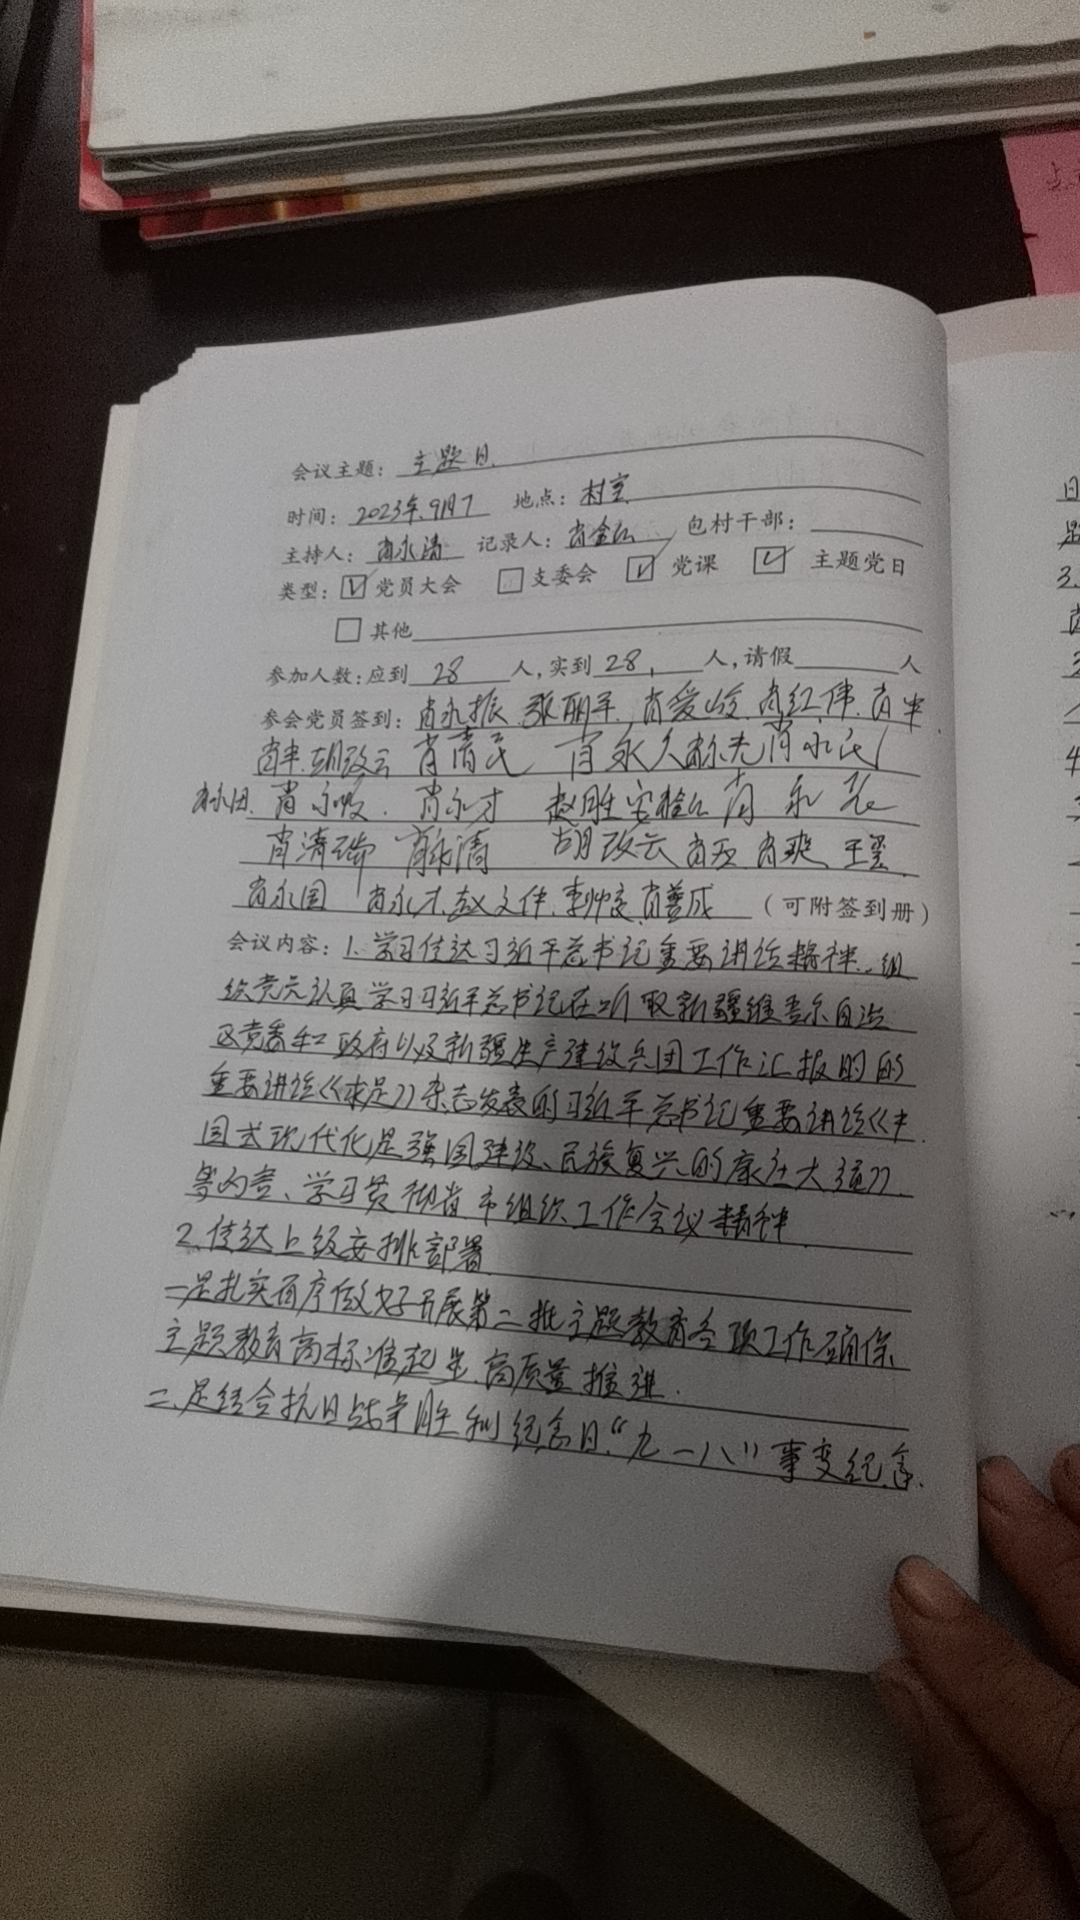 会议主题：主题日
时间：2023年9月7 地点：村室
主持人：肖永清 记录人：肖金 包村干部：
类型：☑党员大会 □支委会 ☑党课 ☑主题党日
□其他
参加人数：应到 28 人，实到 28 人，请假 人
参会党员签到：肖永振 张丽平 肖爱 肖红伟 肖
胡改云 肖清民 肖永久 肖永民
肖永 肖永才 赵胜 肖永
肖清瑞 肖永清 胡改云 肖 肖爽 王
肖永国 肖永才 赵文件 李帅 肖善成 （可附签到册）
会议内容：1.学习传达习近平总书记重要讲话精神、组
织党员认真学习习近平总书记在听取新疆维吾尔自治
区党委和政府以及新疆生产建设兵团工作汇报时的
重要讲话《求是》杂志发表的习近平总书记重要讲话《中
国式现代化是强国建设、民族复兴的康庄大道》
等内容、学习贯彻省市组织工作会议精神
2.传达上级安排部署
一是扎实有序做好开展第二批主题教育各项工作确保
主题教育高标准起步 高质量推进.
二.是结合抗日战争胜利纪念日.“九一八”事变纪念.
3.
4